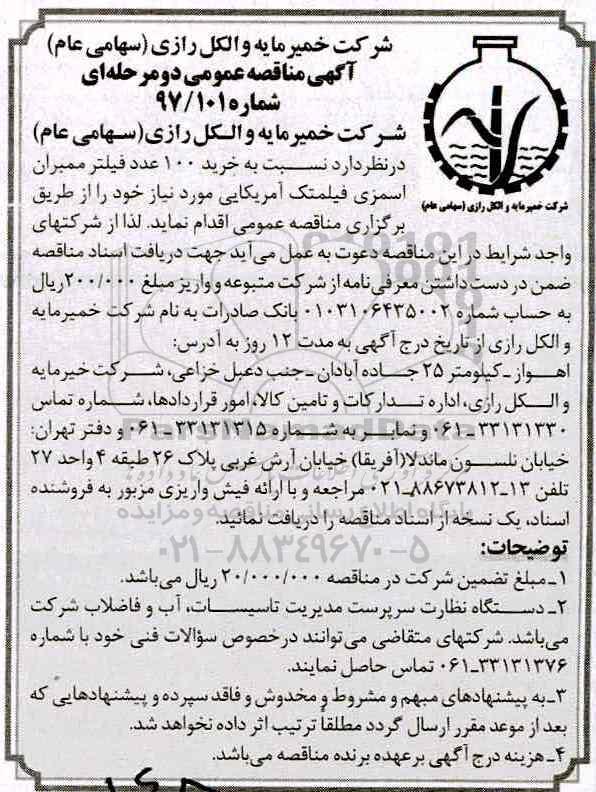 شرکت خمیرمایه و الکل رازی (سهامی عام)
آگهی مناقصه عمومی دو مرحله‌ای
شماره ۹۷/۱۰۱
شرکت خمیرمایه و الکل رازی (سهامی عام)
شرکت خمیرمایه و الکل رازی (سهامی عام)
درنظر دارد نسبت به خرید ۱۰۰ عدد فیلتر ممبران
اسمزی فیلمتک آمریکایی مورد نیاز خود را از طریق
برگزاری مناقصه عمومی اقدام نماید. لذا از شرکتهای
واجد شرایط در این مناقصه دعوت به عمل می‌آید جهت دریافت اسناد مناقصه
ضمن در دست داشتن معرفی‌نامه از شرکت متبوعه و واریز مبلغ ۲۰۰/۰۰۰ ریال
به حساب شماره ۰۱۰۳۱۰۶۴۳۵۰۰۲ بانک صادرات به نام شرکت خمیرمایه
و الکل رازی از تاریخ درج آگهی به مدت ۱۲ روز به آدرس:
اهواز ـ کیلومتر ۲۵ جاده آبادان ـ جنب دعبل خزاعی، شرکت خیرمایه
و الکل رازی، اداره تدارکات و تامین کالا، امور قراردادها، شماره تماس
۰۶۱-۳۳۱۳۱۳۳۰ و نمابر به شماره ۰۶۱-۳۳۱۳۱۳۱۵ و دفتر تهران:
خیابان نلسون ماندلا(آفریقا) خیابان آرش غربی پلاک ۲۶ طبقه ۴ واحد ۲۷
تلفن ۱۳-۰۲۱-۸۸۶۷۳۸۱۲ مراجعه و با ارائه فیش واریزی مزبور به فروشنده
اسناد، یک نسخه از اسناد مناقصه را دریافت نمائید.
ParsNamadData
پایگاه اطلاع رسانی مناقصه و مزایده
۰۲۱-۸۸۳۴۹۶۷۰-۵
توضیحات:
۱ـ مبلغ تضمین شرکت در مناقصه ۲۰/۰۰۰/۰۰۰ ریال می‌باشد.
۲ـ دستگاه نظارت سرپرست مدیریت تاسیسات، آب و فاضلاب شرکت
می‌باشد. شرکتهای متقاضی می‌توانند درخصوص سؤالات فنی خود با شماره
۰۶۱-۳۳۱۳۱۳۷۶ تماس حاصل نمایند.
۳ـ به پیشنهادهای مبهم و مشروط و مخدوش و فاقد سپرده و پیشنهادهایی که
بعد از موعد مقرر ارسال گردد مطلقاً ترتیب اثر داده نخواهد شد.
۴ـ هزینه درج آگهی برعهده برنده مناقصه می‌باشد.